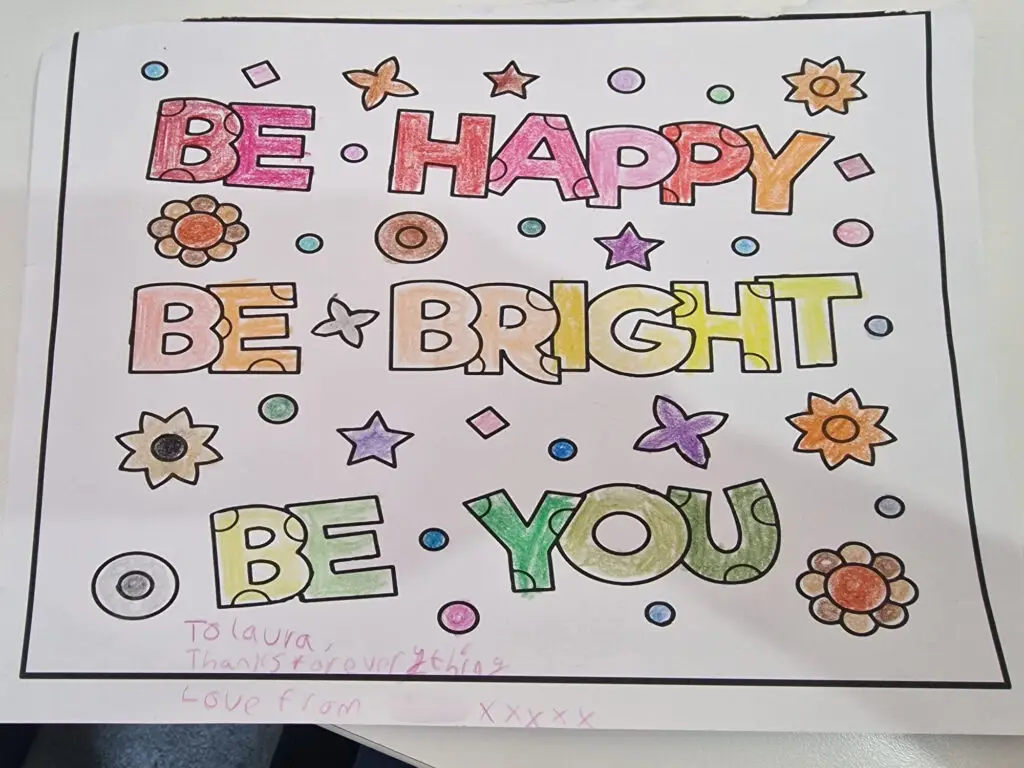 BE HAPPY
BE BRIGHT
BE YOU
To laura,
Thanks for everything
Love from xxxxx